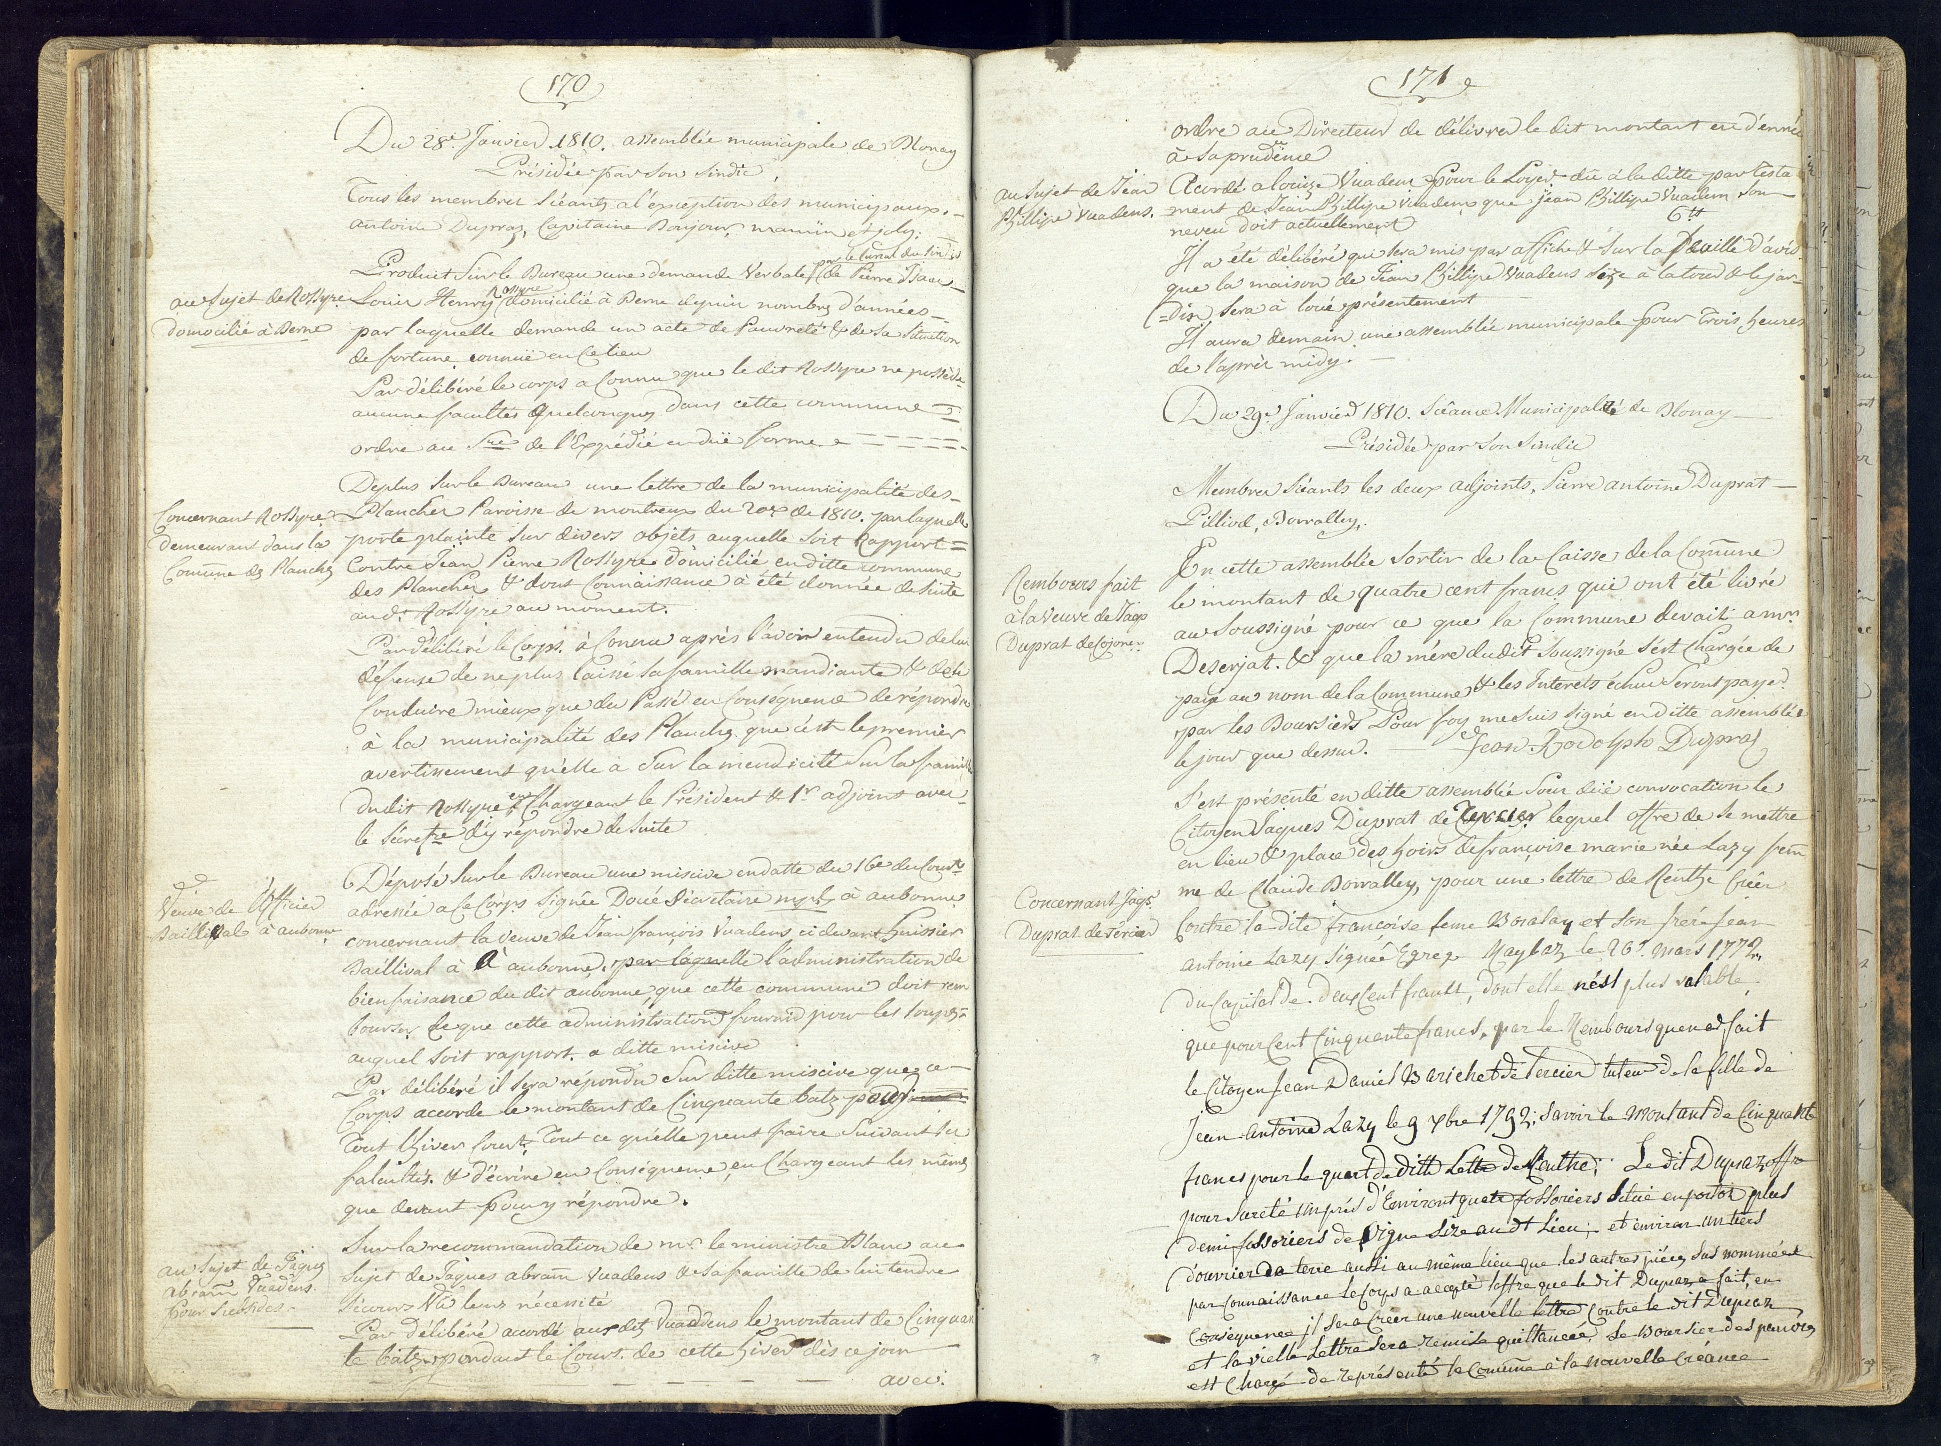 170
Du 28e Janvier 1810. assemblée municipale de Blonay
Présidée par son Sindic,
Tous les membres Séants à l'exception des municipaux.
antoine Dupraz, Capitaine Bonjour, mamin et joly;
par le Cural du Sindic
Produit Sur le Bureau une demande Verbale de Pierre Isaac
au Sujet de Rossyre
domocilié à Berne
Rossyre
Louis Henry domicilié à Berne depuis nombre d'années
par laquelle demande un acte de Pauvreté & de Sa Situation
de fortune connuë en Ce lieu
Par délibéré le corps a Connu que le dit Rossyre ne possède
aucune facultés quelconques dans cette commune
ordre au Sre de l'Expédié en duë forme
Deplus Sur le Bureau une lettre de la municipalité des
Concernant Rossyre
demeurant dans la
Comune des Planches
Planches Paroisse de montreux du 20e de 1810. par laquelle
porte plainte Sur divers objets auquelle Soit Rapport
Contre Jean Pierre Rossyre domicilié en ditte commune
des Planches & dont Connaissance à été donnée de Suite
au dt Rossyre au moment.
Par délibéré le Corps. à Connu après l'avoir entendu de lui
défense de ne plus laissé Sa famille mandiante & de Se
Conduire mieux que du Passé en Conséquence de répondre
à la municipalité des Planches que c'est le premier
avertissement qu'elle à Sur la mendicité Sur la famille
du dit Rossyre en Chargeant le Président & 1r adjoint avec
le Sécretre d'y répondre de Suite
Déposé Sur le Bureau une miscive en datte du 16e du Courrt
Veuve de l'officier
Baillival à aubonne
adressée a Ce Corps Signée Doué Sécretaire mpl à aubonne
concernant la Veuve de Jean françois Vuadens ci devant huissier
Baillival à aubonne, par laquelle l'administration de
bienfaisance du dit aubonne que cette commune doit rem
bourser Ce que cette administration fournid pour les Soupes
auquel Soit rapport. a ditte miscive
Par délibéré il Sera répondu Sur ditte miscive que ce
Corps accorde le montant de Cinquante batz pour
Tout l'hiver Court. Tout ce qu'elle peut faire Suivant Ses
falcultés. & d'écrire en Conséquence, en Chargeant les mêmes
que devant pour y répondre.
Sur la recommandation de mr le ministre Blanc au
au Sujet de Jaques
abram Vuadens.
Pour Subsides.
Sujet de Jaques abram Vuadens & Sa famille de lui tendre
Sécours Vû leur nécessité
Par délibéré acordé aux dits Vuaddens le montant de Cinquan
te batz pendant le Court de cette hiver dès ce jour
avec.
171
ordre au Directeur de délivrer le dit montant en d'enrrée
à Sa prudence
au Sujet de Jean
Phillipe Vuadens.
Acordé a louise Vuadens pour le Loyer dû à la ditte par Testa
ment de Jean Phillipe Vuadens que Jean Phillipe Vuadens Son
neveu doit actuellement 6 tt
Il a été délibéré qui sera mis par affiche & Sur la feuille d'avis
que la maison de Jean Phillipe Vuadens Size à la tour & le jar
din Sera à loué présentement
Il aura demain une assemblée municipale pour Trois heures
de l'après midy.
Du 29e Janvier 1810. Séance Municipalité de Blonay
Présidée par Son Sindic
Membres Séants les deux adjoints, Pierre antoine Duprat
Pilliod, Borralley,
En cette assemblée Sortir de la Caisse de la Comune
Rembours fait
à la Veuve de Jaqs
Duprat de Cojonex
le montant de quatre cent francs qui ont été livré
au Soussigné pour ce que la Commune devait a mr
Deserjat. & que la mère dudit Soussigné s'est Chargée de
payé au nom de la Commune, & les Interets échus Seront payé
par les Boursiers Pour foy me Suis Signé en ditte assemblée
le jour que dessus. Jean Rodolph Dupraz
S'est présenté en ditte assemblée Sous düe convocation le
Citoyen Jaques Duprat de Tercier lequel offre de Se mettre
en lieu & place des hoirs de françoise marie née Lazy fem
me de Claude Borralley, pour une lettre de Renthe Créer
Concernant Jaqs
Duprat de Tercier
Contre la dite françoise feme Boralay et Son frère Jean
Antoine Lazy Signée Egrege Maybaz le 26e Mars 1772,
Du Capital de Deux Cent francs, dont elle n'est plus valable
que pour Cent Cinquante francs, par le Rembours quen as fait
le Citoyen Jean Daniel Barichet de Tercier tuteur de la fille de
Jean Antoine Lazy le 9 xbre 1792; Savoir le Montant de Cinquante
francs pour le quart de ditte Lettre de Renthe; Le dit Dupraz offre
pour Sureté Un près d'Environt quatre fossoriers Situé en portoz plus
demi fossoriers de Vigne Size au dt Lieu; et environ un tiers
d'ouvrier de terre aussi au même lieu que les autres pièces Sus nommées
par Connaissance le Corps a accepté l'offre que le dit Dupraz a fait, en
Conséquence il Sera Créer une nouvelle lettre Contre le dit Dupraz
et la vielle Lettre Sera remise quittancée, Le Boursier des pauvres
est Chargé de représenté la Comune à la nouvelle Créance